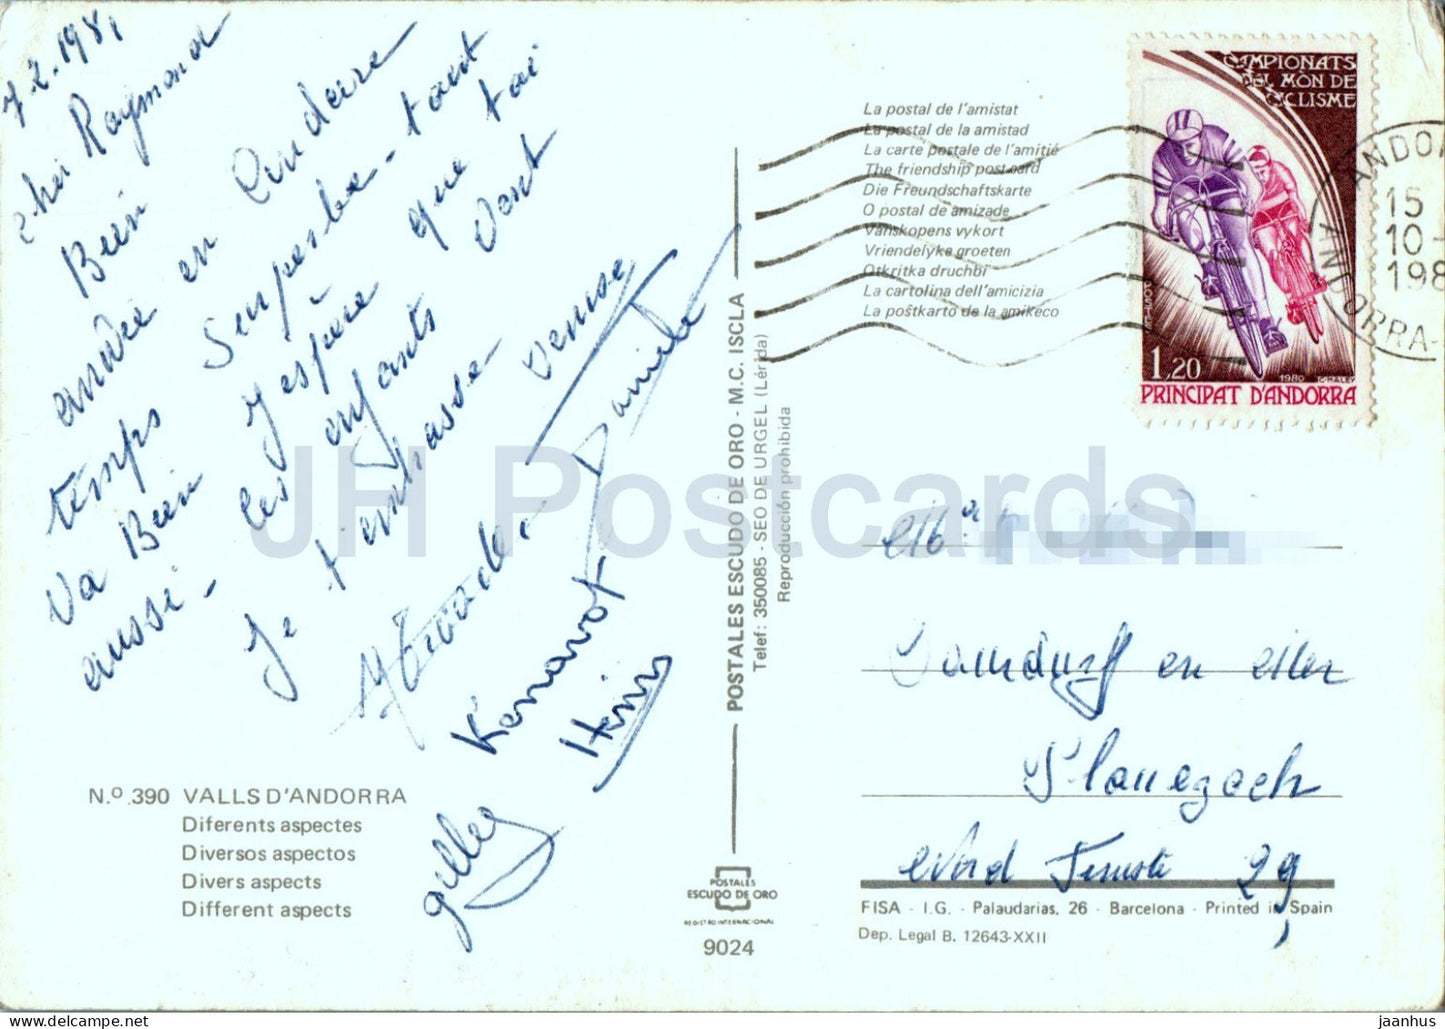 7.2.1981
cher Raymond
Bien
en
andre
temps superbe - tout
va Bien j'espère que toi
aussi - les enfants vont
Je t'embrasse - Denise
Daniel
Kénavot
Henri
gilles
Nº.390 VALLS D'ANDORRA
Diferents aspectes
Diversos aspectos
Divers aspects
Different aspects
POSTALES ESCUDO DE ORO - M.C. ISCLA
Telef: 350085 - SEO DE URGEL (Lérida)
Reproducción prohibida
POSTALES
ESCUDO DE ORO
REGISTRO INTERNACIONAL
9024
La postal de l'amistat
La postal de la amistad
La carte postale de l'amitié
The friendship postcard
Die Freundschaftskarte
O postal de amizade
Vänskopens vykort
Vriendelyke groeten
Otkritka druchbi
La cartolina dell'amicizia
La poŝtkarto de la amikeco
CAMPIONATS
DEL MÓN DE
CICLISME
1,20
1980
PRINCIPAT D'ANDORRA
ANDOR
15
10 -
198
ANDORRA-
en
Plouezoch
Nord 29
FISA - I.G. - Palaudarias, 26 - Barcelona - Printed in Spain
Dep. Legal B. 12643-XXII
JH Postcards
jaanhus